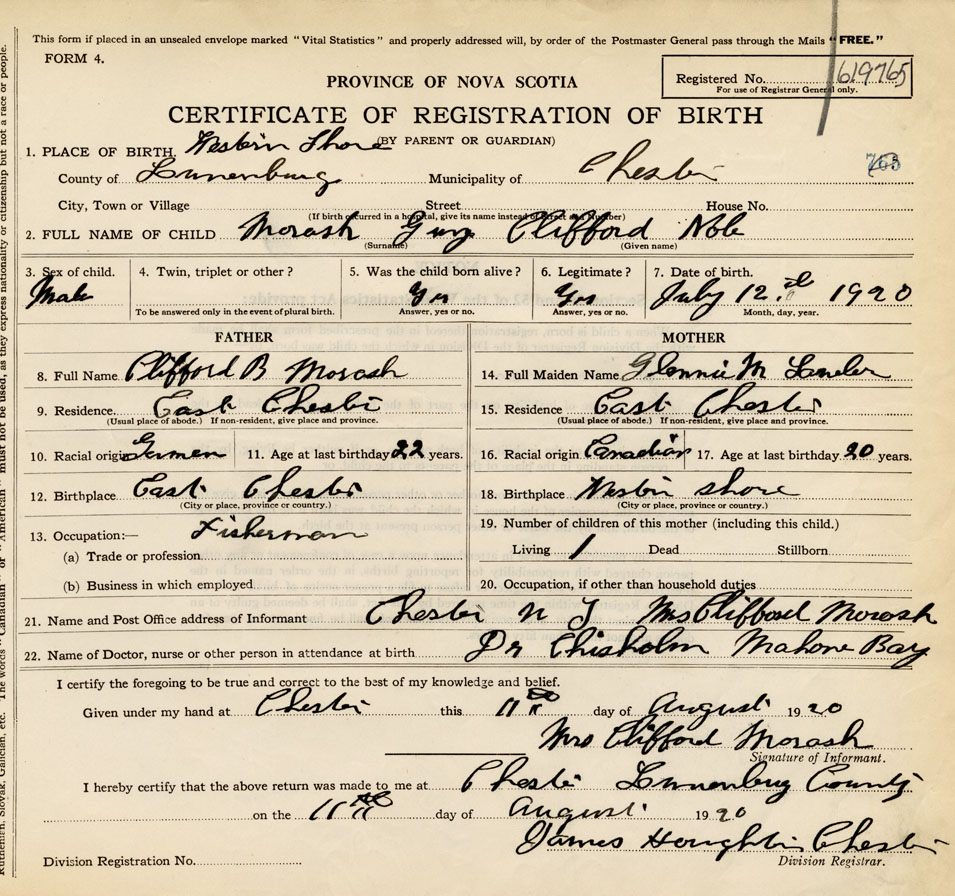 This form if placed in an unsealed envelope marked "Vital Statistics" and properly addressed will, by order of the Postmaster General pass through the Mails "FREE."
FORM 4.
PROVINCE OF NOVA SCOTIA
Registered No. 619765
For use of Registrar General only.
CERTIFICATE OF REGISTRATION OF BIRTH
(BY PARENT OR GUARDIAN)
1. PLACE OF BIRTH. Western Shore
763
County of Lunenburg Municipality of Chester
City, Town or Village Street House No.
(If birth occurred in a hospital, give its name instead of Street and Number)
2. FULL NAME OF CHILD Morash Guy Clifford Noble
(Surname) (Given name)
3. Sex of child. 4. Twin, triplet or other? 5. Was the child born alive? 6. Legitimate? 7. Date of birth.
Male Yes Yes July 12th 1920
To be answered only in the event of plural birth. Answer, yes or no. Answer, yes or no. Month, day, year.
FATHER MOTHER
8. Full Name Clifford B Morash 14. Full Maiden Name Glennie M
9. Residence East Chester 15. Residence East Chester
(Usual place of abode.) If non-resident, give place and province. (Usual place of abode.) If non-resident, give place and province.
10. Racial origin German 11. Age at last birthday 22 years. 16. Racial origin Canadian 17. Age at last birthday 20 years.
12. Birthplace East Chester 18. Birthplace Western shore
(City or place, province or country.) (City or place, province or country.)
13. Occupation:— Fisherman 19. Number of children of this mother (including this child.)
(a) Trade or profession Living 1 Dead Stillborn
(b) Business in which employed 20. Occupation, if other than household duties
21. Name and Post Office address of Informant Chester N S Mrs Clifford Morash
22. Name of Doctor, nurse or other person in attendance at birth Dr Chisholm Mahone Bay
I certify the foregoing to be true and correct to the best of my knowledge and belief.
Given under my hand at Chester this 11th day of August 1920
Mrs Clifford Morash
Signature of Informant.
I hereby certify that the above return was made to me at Chester Lunenburg County
on the 11th day of August 1920
James Houghton Chester
Division Registration No. Division Registrar.
Ruthenian, Slovak, Galician, etc. The words "Canadian" or "American" must not be used, as they express nationality or citizenship but not a race or people.